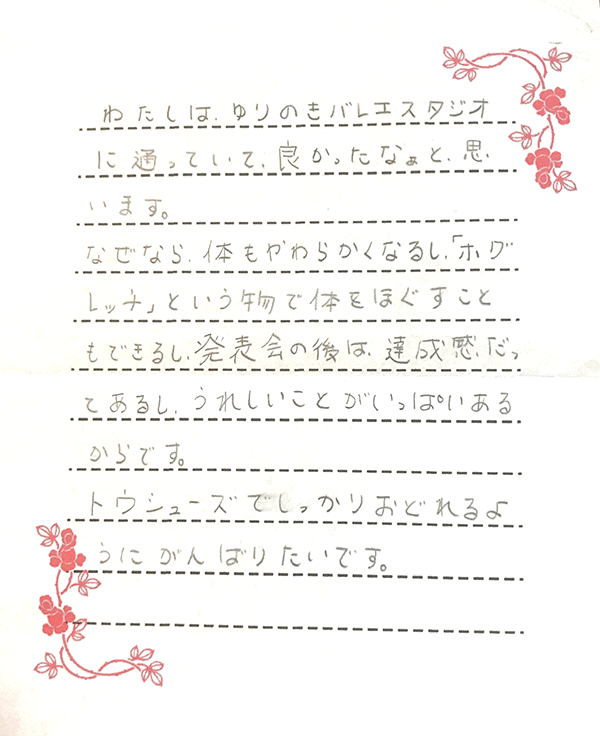 わたしは、ゆりのきバレエスタジオ
に通っていて、良かったなぁと、思
います。
なぜなら、体もやわらかくなるし、「ホグ
レッチ」という物で体をほぐすこと
もできるし、発表会の後は、達成感だっ
てあるし、うれしいことがいっぱいある
からです。
トウシューズでしっかりおどれるよ
うにがんばりたいです。